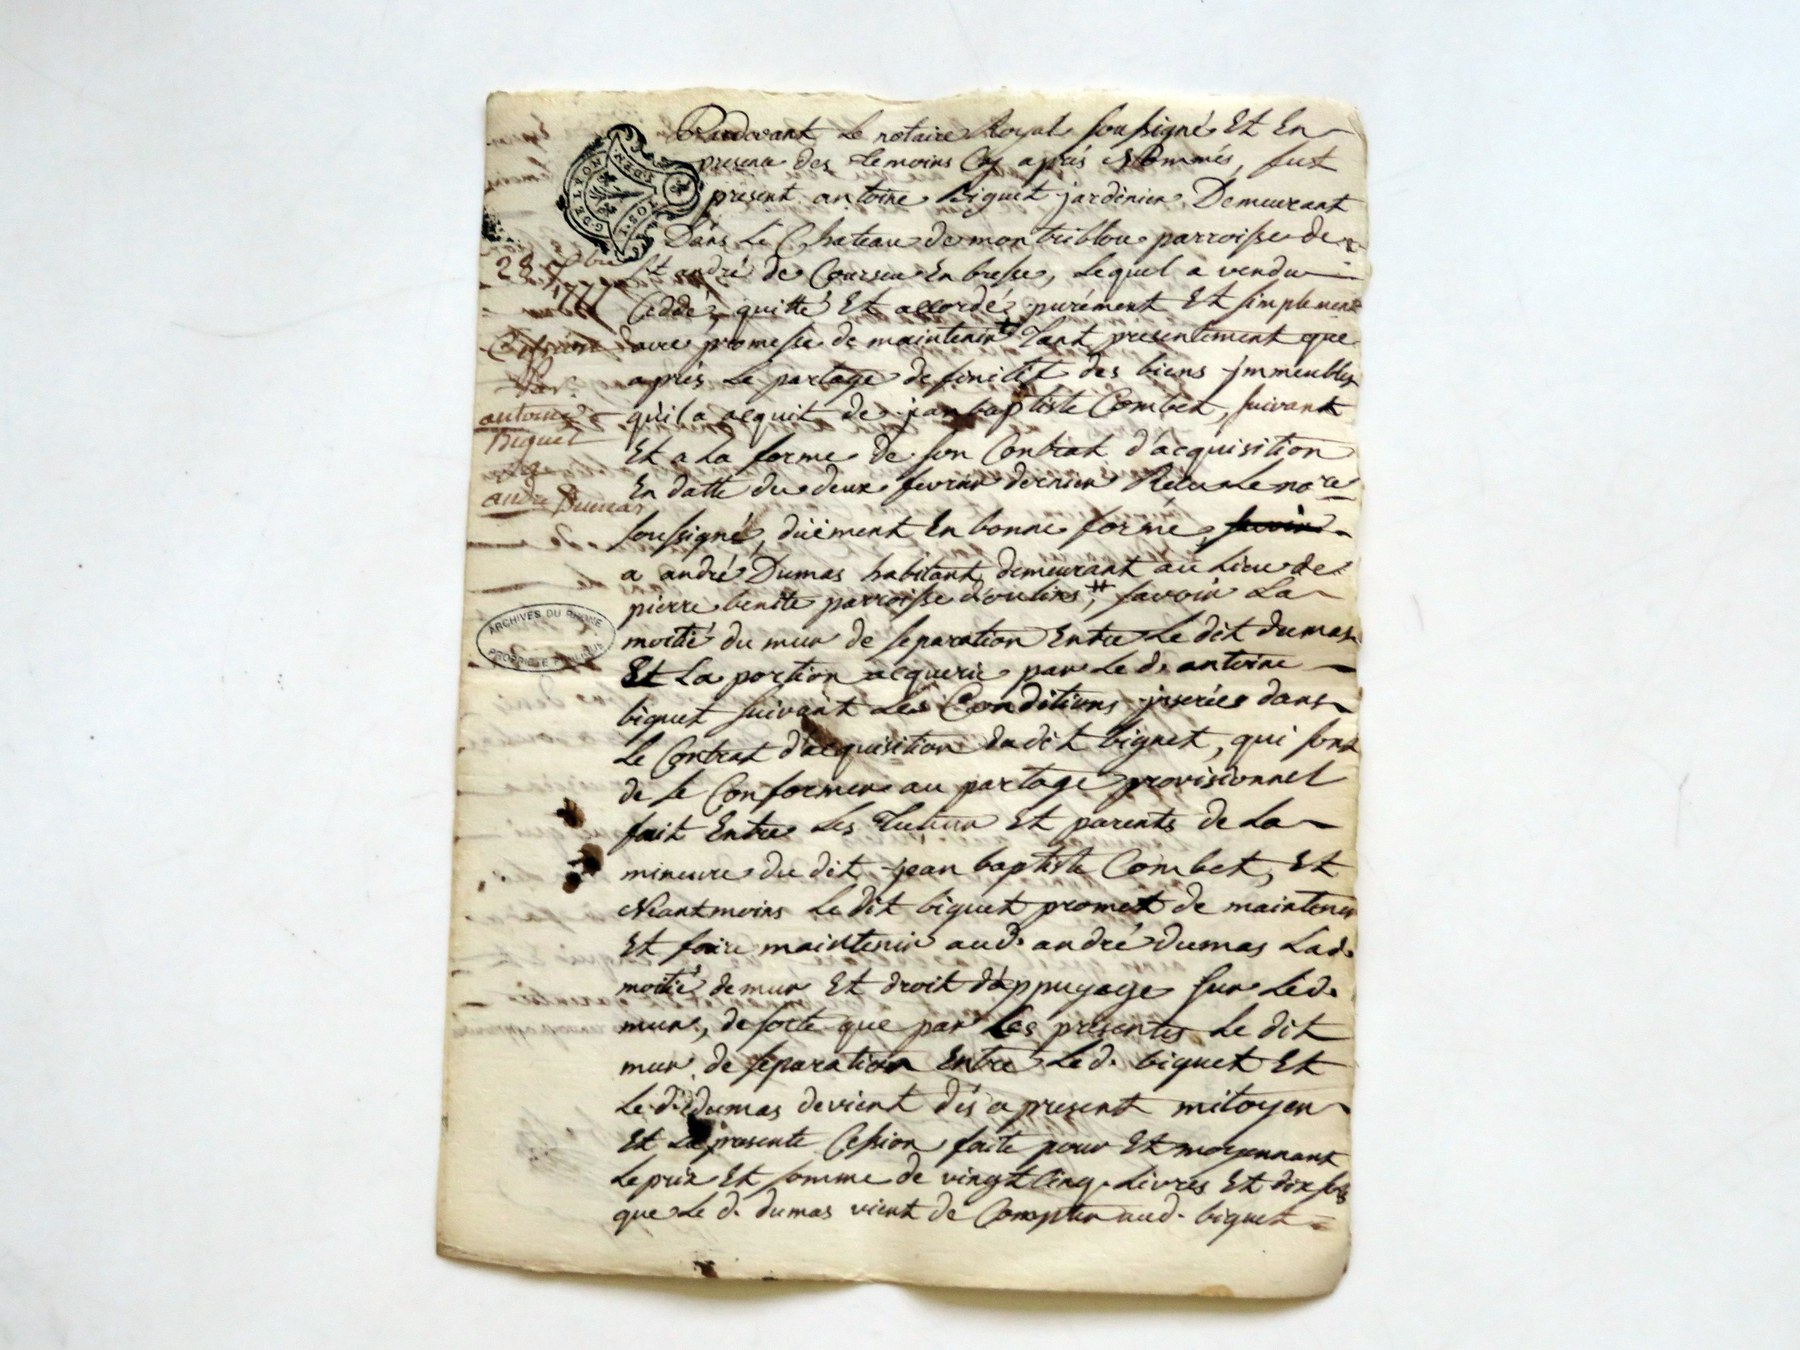 Pardevant Le notaire Royal soussigné Et En
presence des temoins Cy aprés Nommés, fust
present antoine Biguet jardinier Demeurant
Dans Le Chateau de montriblou parroisse de
St andré de Coursieu En bresse, Lequel a vendu
Ceddé, quitté Et accordé purément Et simplement
avec promesse de maintenir tant presentement que
aprés Le partage definitif des biens immeubles
qu'il a acquit de jean baptiste Combet, suivant
Et a La forme de son Contrat d'acquisition
En datte du deux fevrier dernier Recu Le nore
soussigné, düement En bonne forme,
a andré Dumas habitant demeurant au Lieu de
pierre benite parroisse d'oulins, savoir La
moitié du mur de separation Entre Le dit dumas
Et La portion acquerie par Le d. antoine
biguet suivant Les Conditions inserées dans
Le Contrat d'acquisition du dit biguet, qui sont
de se Conformer au partage provisionnel
fait Entre Les Tuteur Et parents de La
mineure du dit jean baptiste Combet, Et
Neantmoins Le dit biguet promet de maintenir
Et faire maintenir aud. andré Dumas Lad.
moitié de mur Et droit d'appuyage sur Led.
mur, de sorte que par Les presentes Le dit
mur de separation Entre Led. biguet Et
Le d. dumas devient dés a present mitoyen
Et La presente Cession faite pour Et moyennant
Le prix Et somme de vingt Cinq Livres Et dix sols
que Le d. dumas vient de Compter aud. biguet
G. DE LYON
28 7bre
1777
Cession
Par
antoine
Biguet
a
andré Dumas
ARCHIVES DU RHÔNE
PROPRIÉTÉ PUBLIQUE